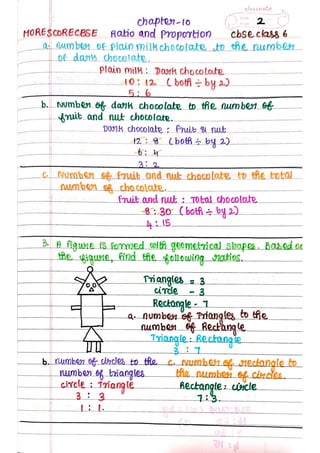 chocolate
chapter-10
2
MORESCORECBSE Ratio and Proportion cbse class 6
a. Number of plain milk chocolate to the number
of dark chocolate.
plain milk : Dark chocolate
10 : 12 ( both ÷ by 2)
5 : 6
b. Number of dark chocolate to the number of
fruit and nut chocolate.
Dark chocolate : Fruit & nut
12 : 8 ( both ÷ by 2)
6 : 4
3 : 2
c. Number of Fruit and nut chocolate to the total
number of chocolate.
Fruit and nut : Total chocolate
8 : 30 ( both ÷ by 2)
4 : 15
3. A figure is formed with geometrical shapes. Based on
the figure, find the following ratios.
Triangles = 3
circle - 3
Rectangle - 7
a. number of Triangles to the
number of Rectangle
Triangle : Rectangle
3 : 7
b. number of circles to the
number of triangles
circle : Triangle
3 : 3
1 : 1.
c. Number of rectangle to
the number of circles.
Rectangle : circle
7 : 3.